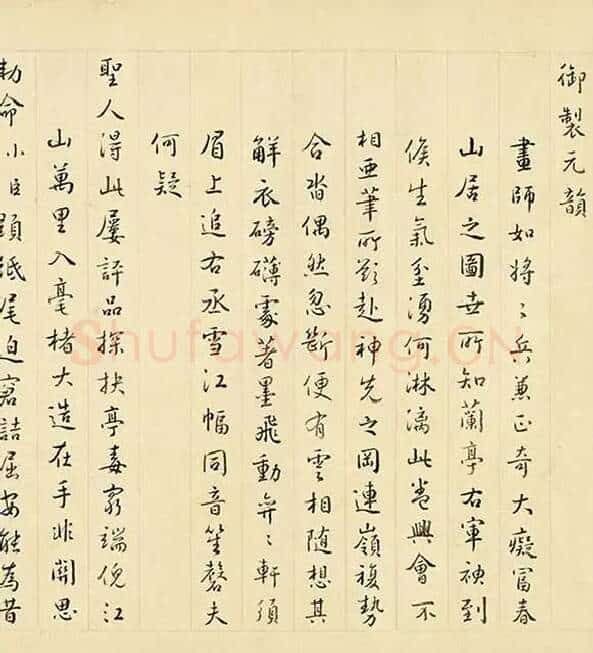 御製元韻
畫師如將〻兵兼正奇大癡富春
山居之圖世所知蘭亭右軍神到
候生氣至湧何淋漓此卷興會不
相亞筆所赴神先之岡連嶺複勢
合沓偶然忽斷便有雲相隨想其
解衣磅礴處著墨飛動奕〻軒須
眉上追右丞雪江幅同音笙磬夫
何疑
聖人得此屢評品探抉亭毒窮端倪江
山萬里入毫楮大造在手非關思
勅命小臣題紙尾迫窘詰屈安能為昔
Shufawang.CN